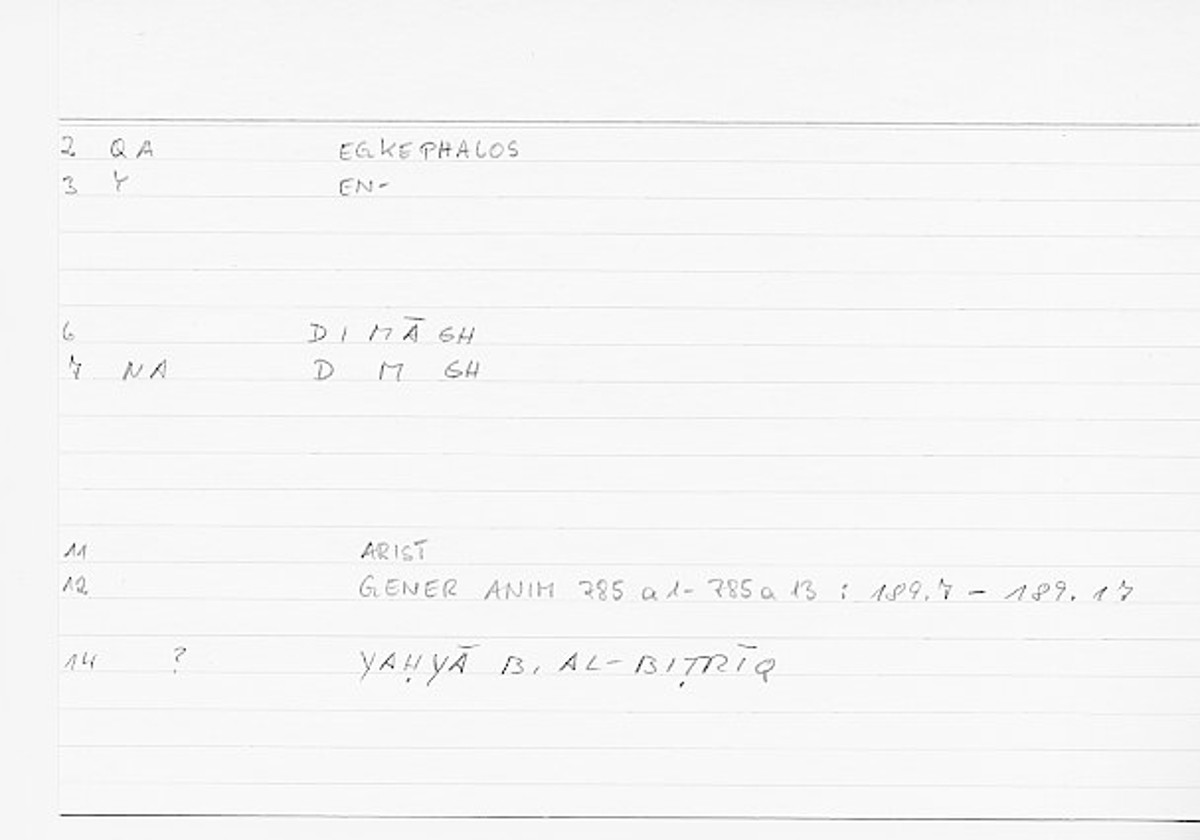 2 QA EGKEPHALOS
3 Y EN-
6 DI MĀ GH
7 NA D M GH
11 ARIST
12 GENER ANIM 785 a 1- 785 a 13 : 189.7 - 189.17
14 ? YAḤYĀ B. AL-BIṬRĪQ